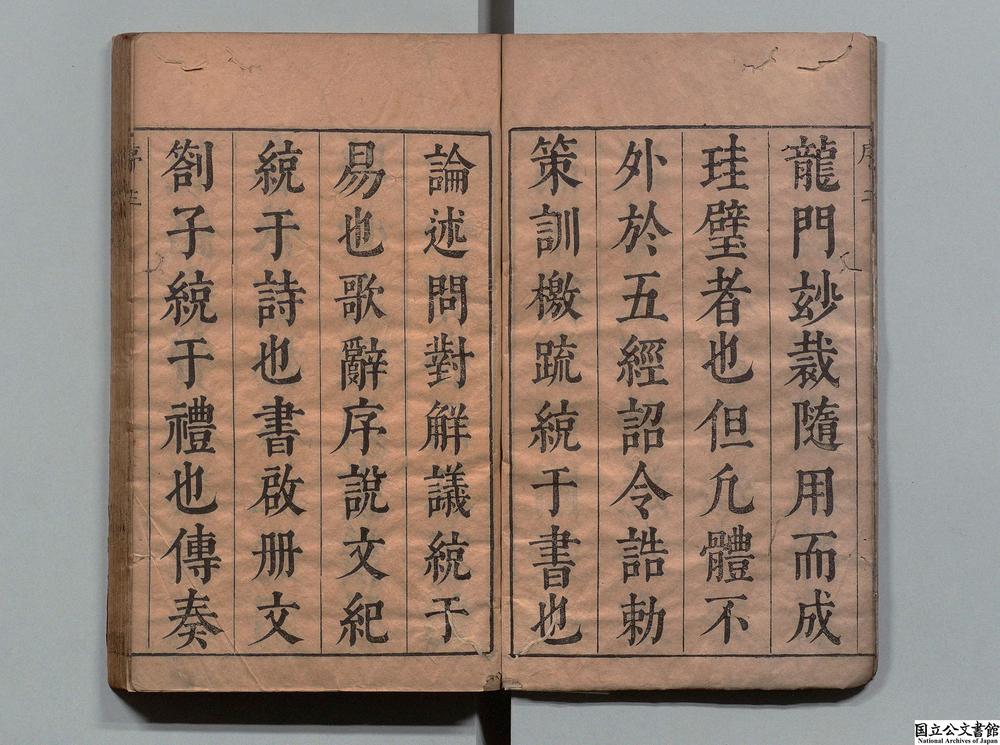 龍門玅裁隨用而成
珪璧者也但凢體不
外於五經詔令誥勅
策訓檄䟽統于書也
論述問對解議統于
易也歌辭序說文紀
統于詩也書啟册文
劄子統于禮也傳奏
国立公文書館
National Archives of Japan